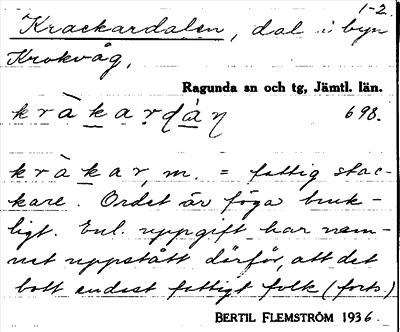 1-2.
Krackardalen, dal i byn
Krokvåg.
Ragunda sn och tg, Jämtl. län.
kràkarḍàṇ 698.
kràkar, m. = fattig stac-
kare. Ordet är föga bruk-
ligt. Enl. uppgift har nam-
net uppstått därför, att det
bott endast fattigt folk (forts.)
BERTIL FLEMSTRÖM 1936.